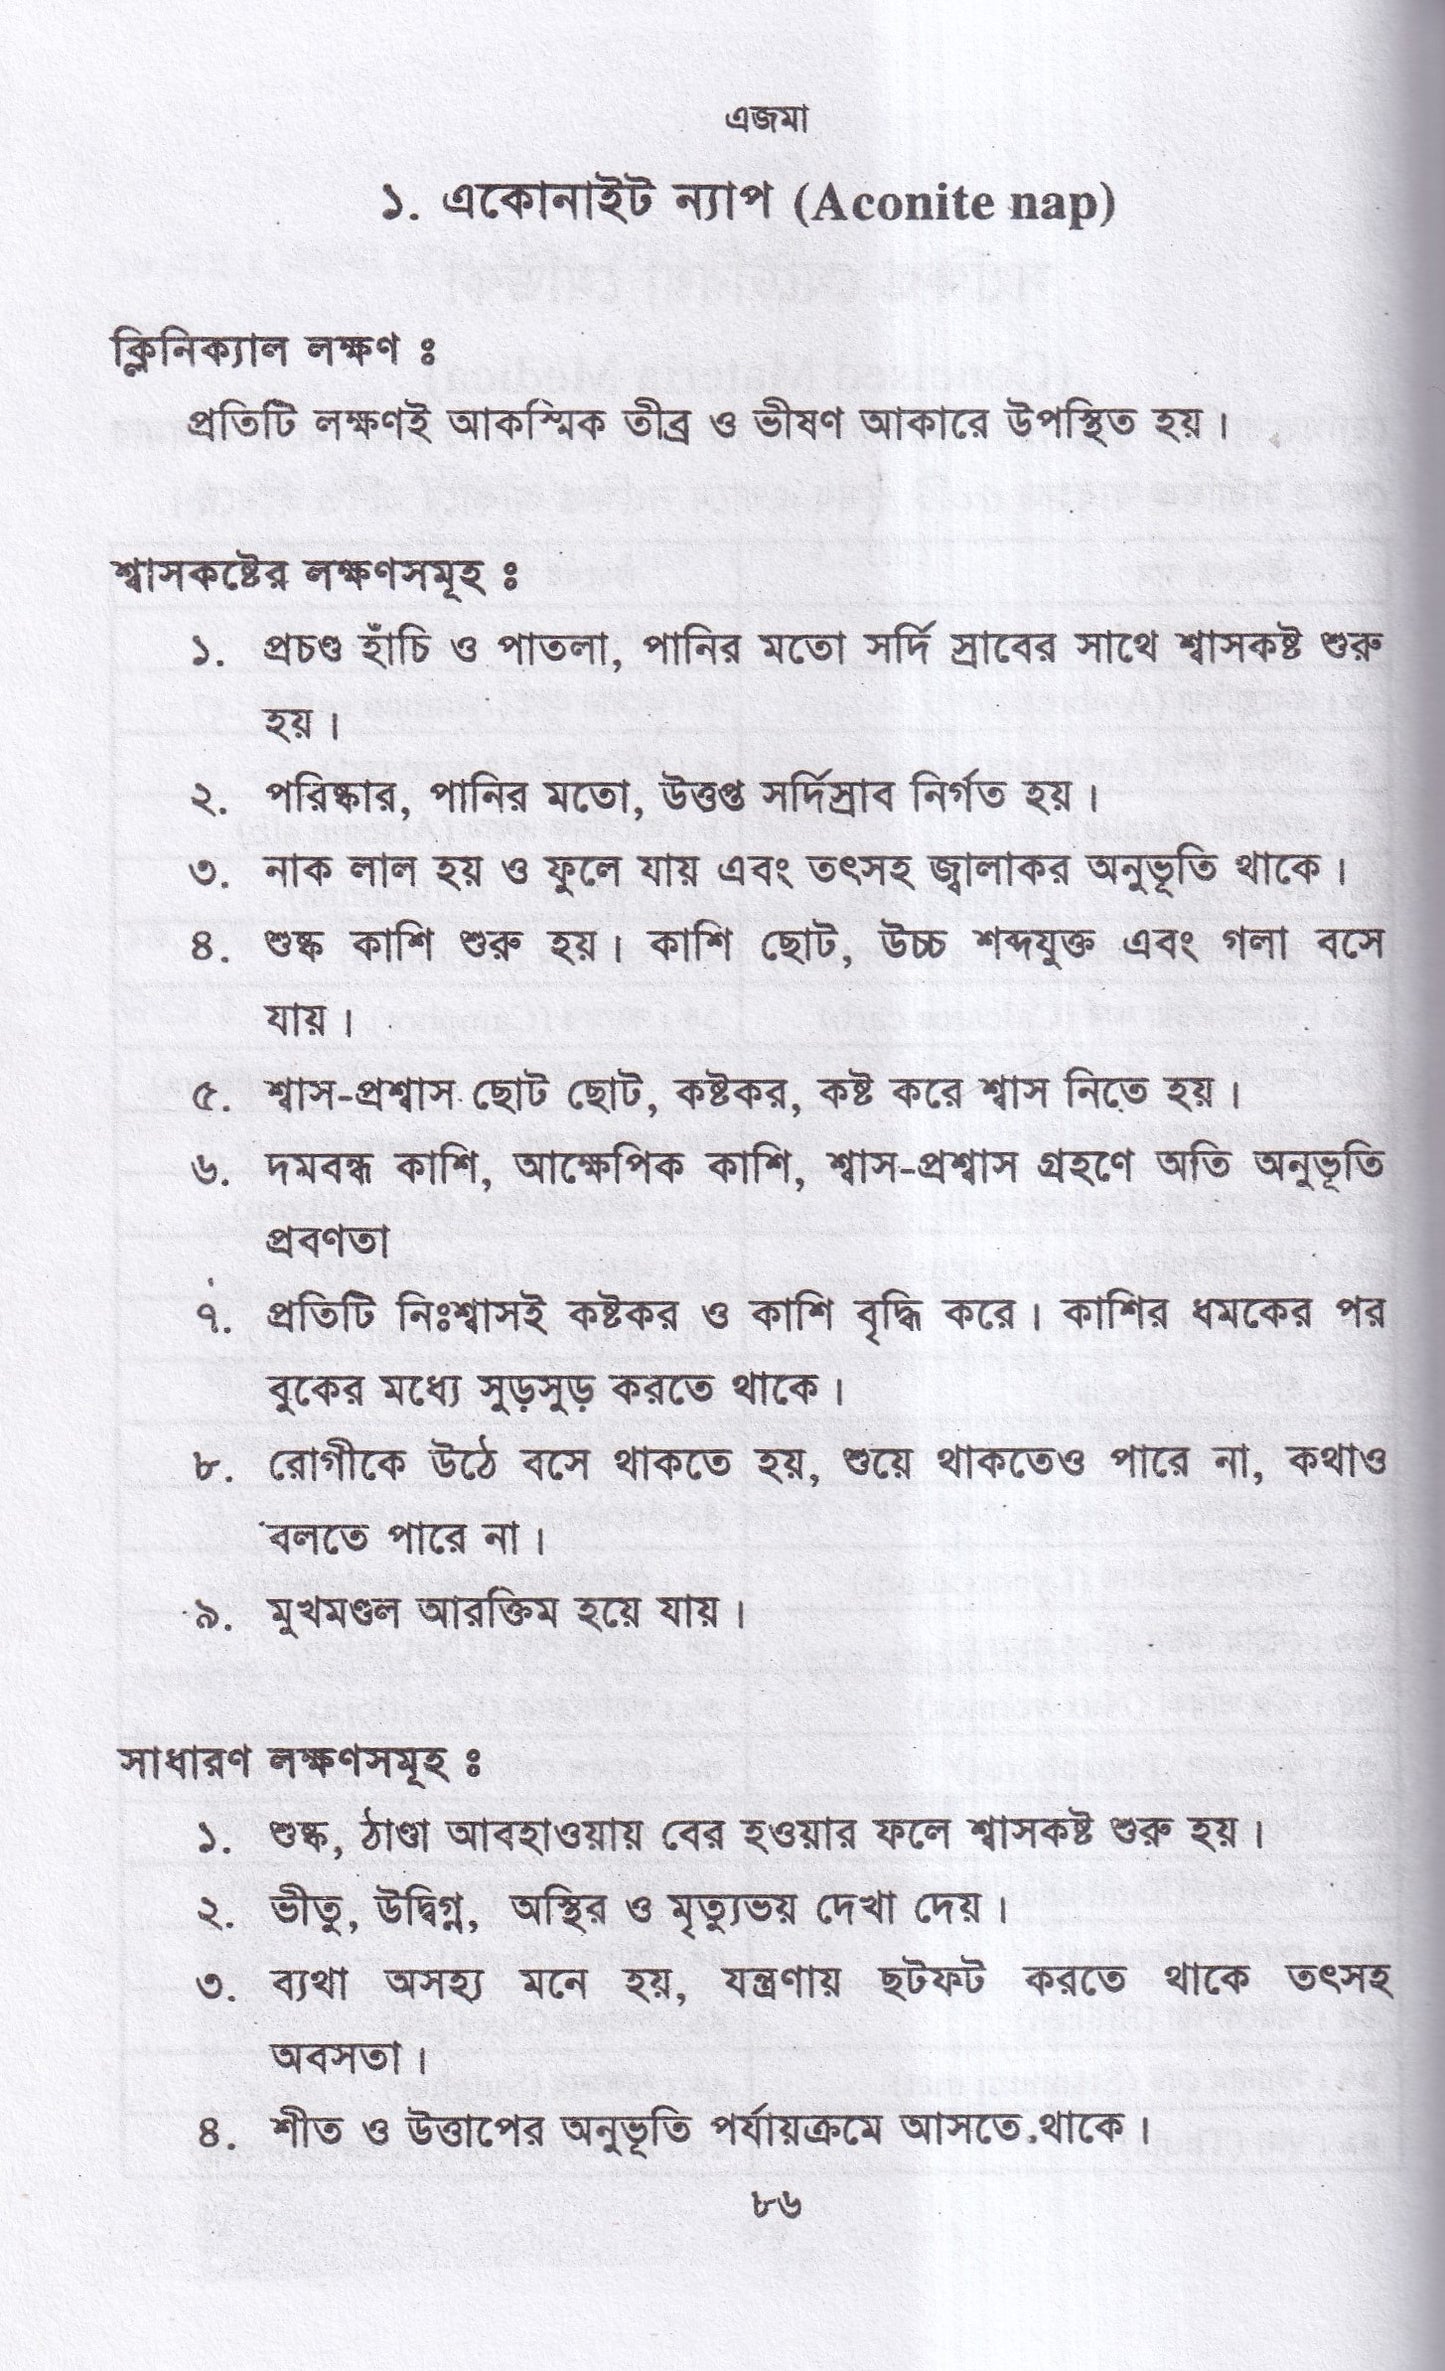 এজমা
১. একোনাইট ন্যাপ (Aconite nap)
ক্লিনিক্যাল লক্ষণ ঃ
প্রতিটি লক্ষণই আকস্মিক তীব্র ও ভীষণ আকারে উপস্থিত হয়।
শ্বাসকষ্টের লক্ষণসমূহ ঃ
১. প্রচণ্ড হাঁচি ও পাতলা, পানির মতো সর্দি স্রাবের সাথে শ্বাসকষ্ট শুরু
হয়।
২. পরিষ্কার, পানির মতো, উত্তপ্ত সর্দিস্রাব নির্গত হয়।
৩. নাক লাল হয় ও ফুলে যায় এবং তৎসহ জ্বালাকর অনুভূতি থাকে।
৪. শুষ্ক কাশি শুরু হয়। কাশি ছোট, উচ্চ শব্দযুক্ত এবং গলা বসে
যায়।
৫. শ্বাস-প্রশ্বাস ছোট ছোট, কষ্টকর, কষ্ট করে শ্বাস নিতে হয়।
৬. দমবন্ধ কাশি, আক্ষেপিক কাশি, শ্বাস-প্রশ্বাস গ্রহণে অতি অনুভূতি
প্রবণতা
৭. প্রতিটি নিঃশ্বাসই কষ্টকর ও কাশি বৃদ্ধি করে। কাশির ধমকের পর
বুকের মধ্যে সুড়সুড় করতে থাকে।
৮. রোগীকে উঠে বসে থাকতে হয়, শুয়ে থাকতেও পারে না, কথাও
বলতে পারে না।
৯. মুখমণ্ডল আরক্তিম হয়ে যায়।
সাধারণ লক্ষণসমূহ ঃ
১. শুষ্ক, ঠাণ্ডা আবহাওয়ায় বের হওয়ার ফলে শ্বাসকষ্ট শুরু হয়।
২. ভীতু, উদ্বিগ্ন, অস্থির ও মৃত্যুভয় দেখা দেয়।
৩. ব্যথা অসহ্য মনে হয়, যন্ত্রণায় ছটফট করতে থাকে তৎসহ
অবসতা।
৪. শীত ও উত্তাপের অনুভূতি পর্যায়ক্রমে আসতে থাকে।
৮৬